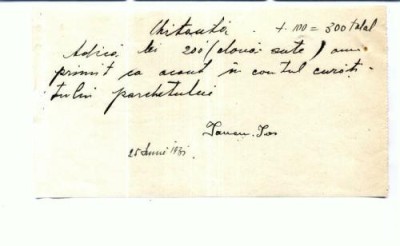 Chitanță. + 100 = 300 total
Adică lei 200 (două sute) am
primit ca acont în contul curăți-
tului parchetului
25 Iunie 193